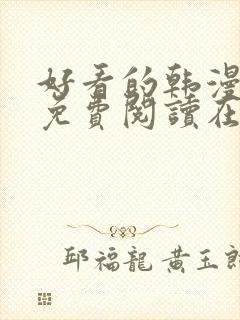 好看的韩漫
免費閱讀在
邱福龍 黄玉郎